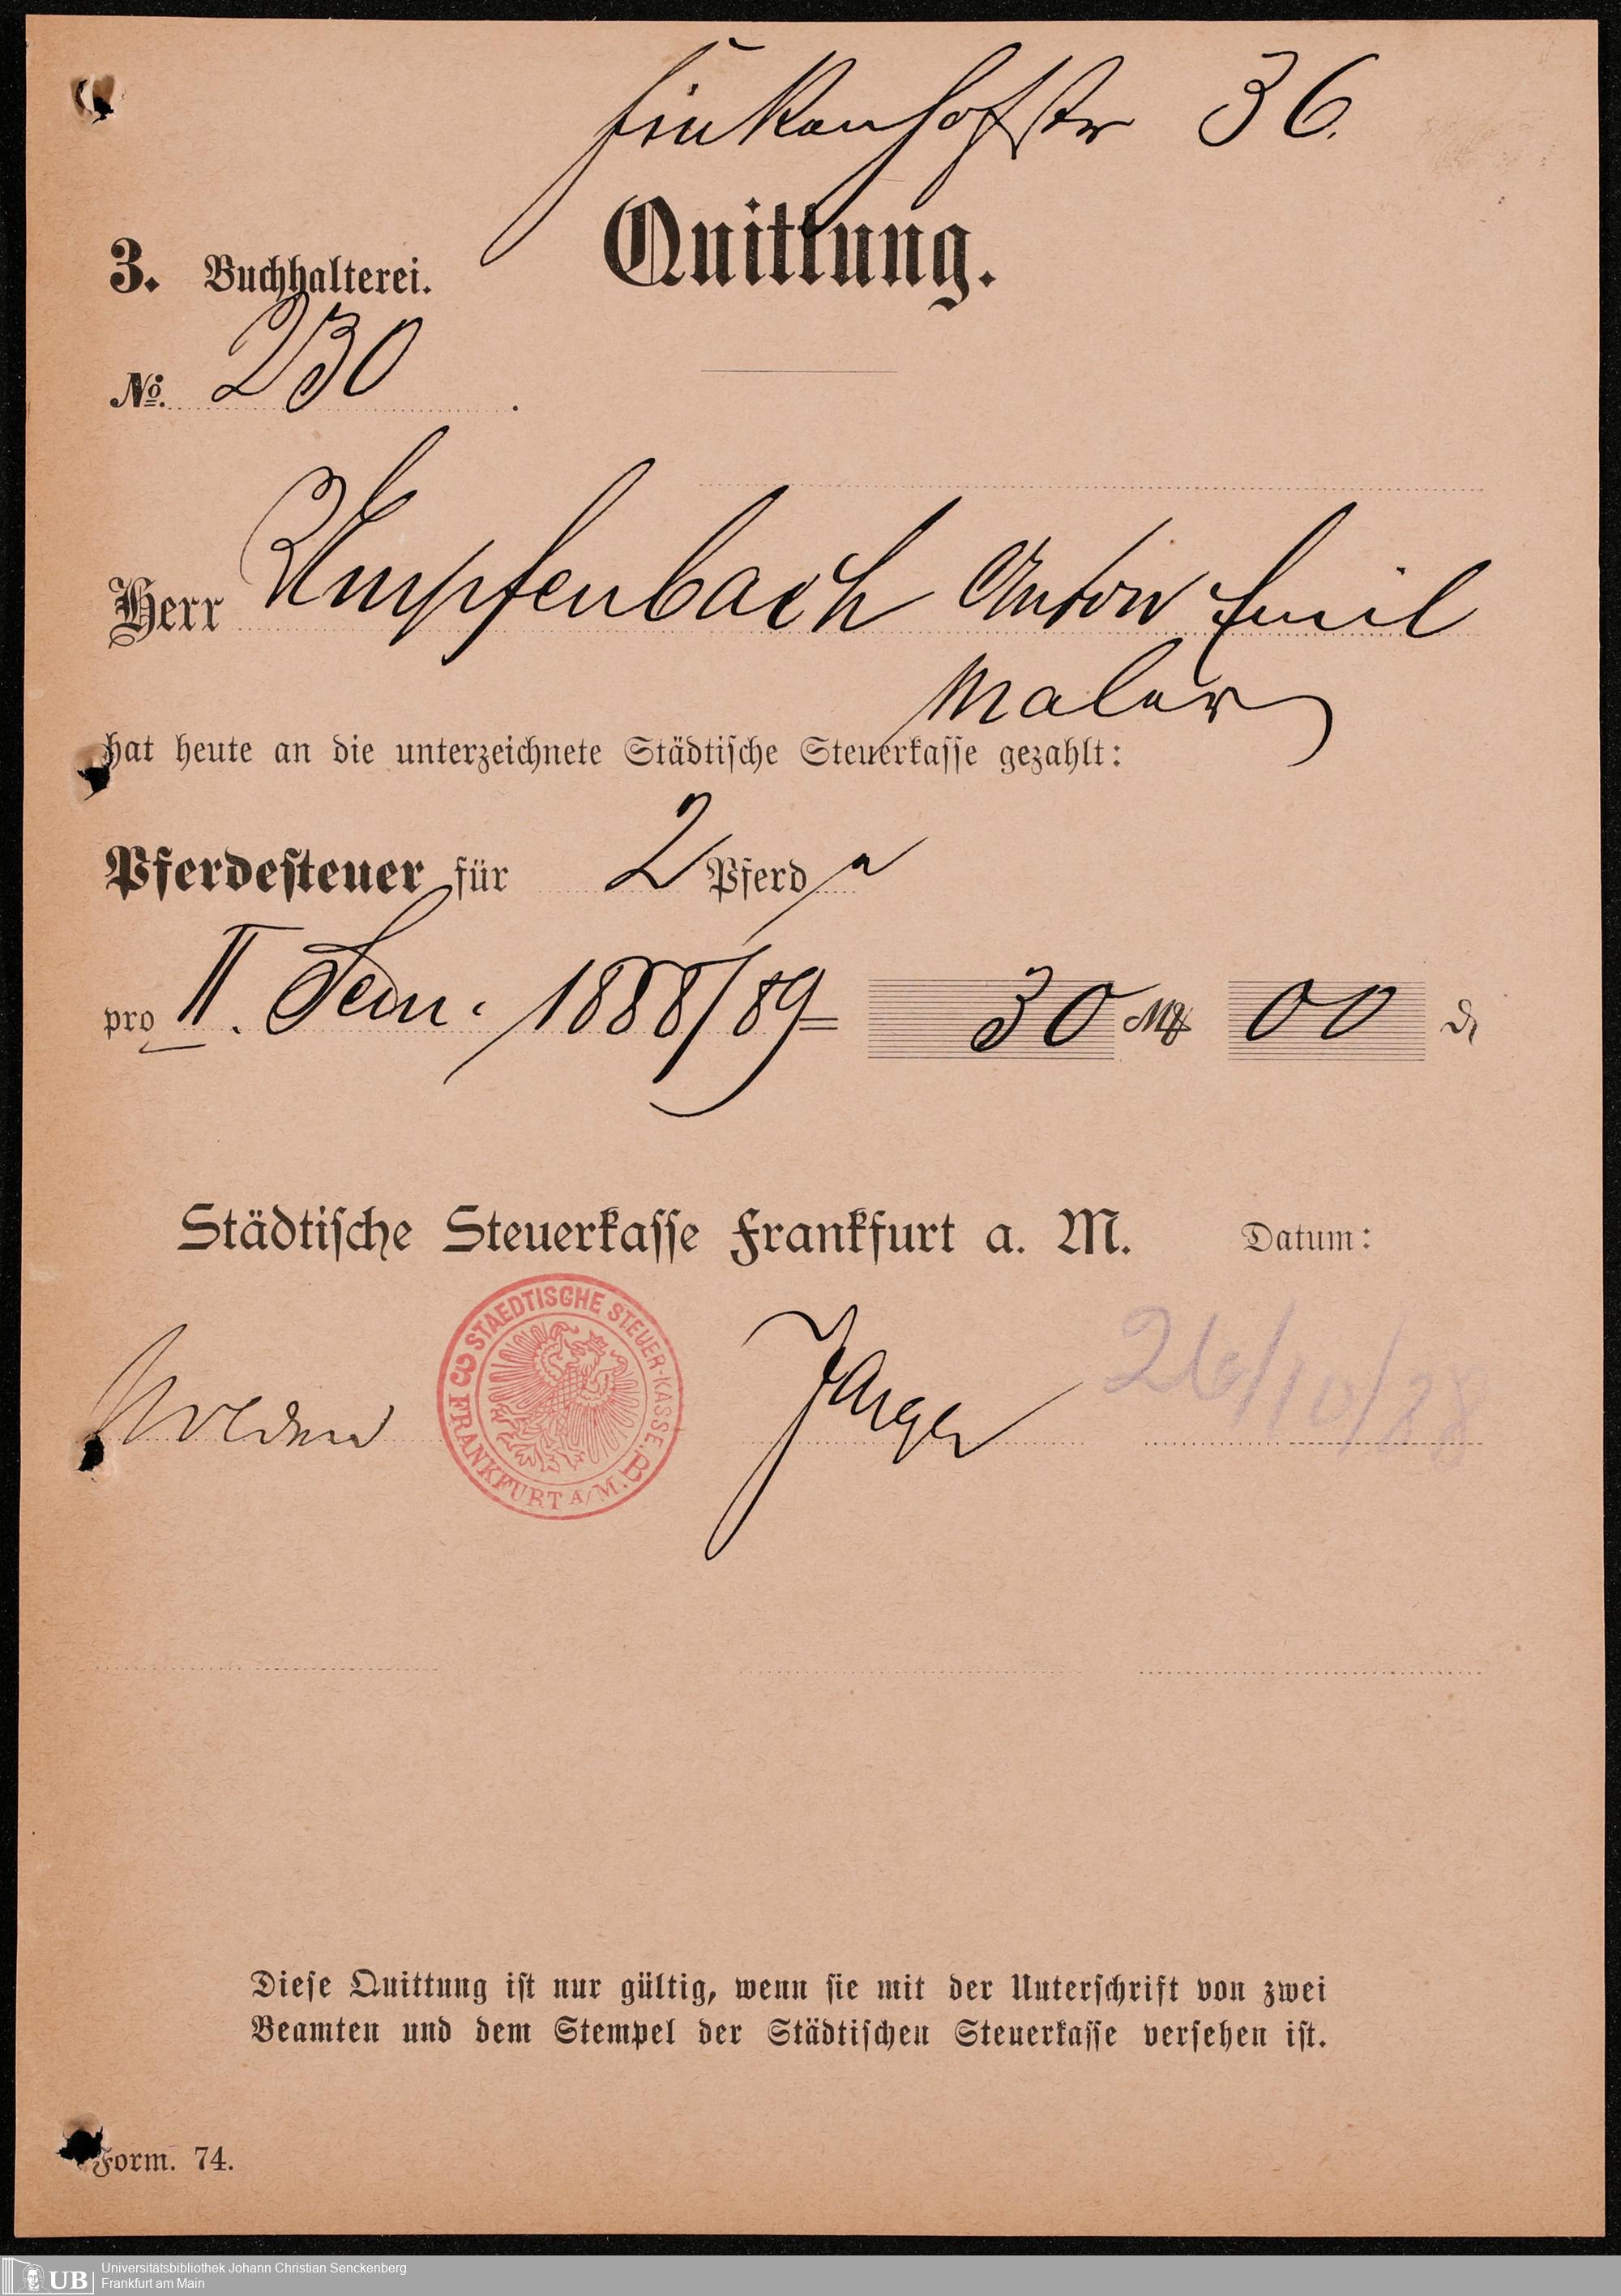 Finkenhofstr 36.
Quittung.
3. Buchhalterei.
No. 230
Herr Umpfenbach Anton Emil
Maler
hat heute an die unterzeichnete Städtische Steuerkasse gezahlt:
Pferdesteuer für 2 Pferde
pro II. Sem. 1888/89 = 30 Mk 00 ₰
Städtische Steuerkasse Frankfurt a. M. Datum:
STAEDTISCHE STEUER-KASSE. B
FRANKFURT A/M.
26/10/88
Diese Quittung ist nur gültig, wenn sie mit der Unterschrift von zwei
Beamten und dem Stempel der Städtischen Steuerkasse versehen ist.
Form. 74.
UB Universitätsbibliothek Johann Christian Senckenberg
Frankfurt am Main